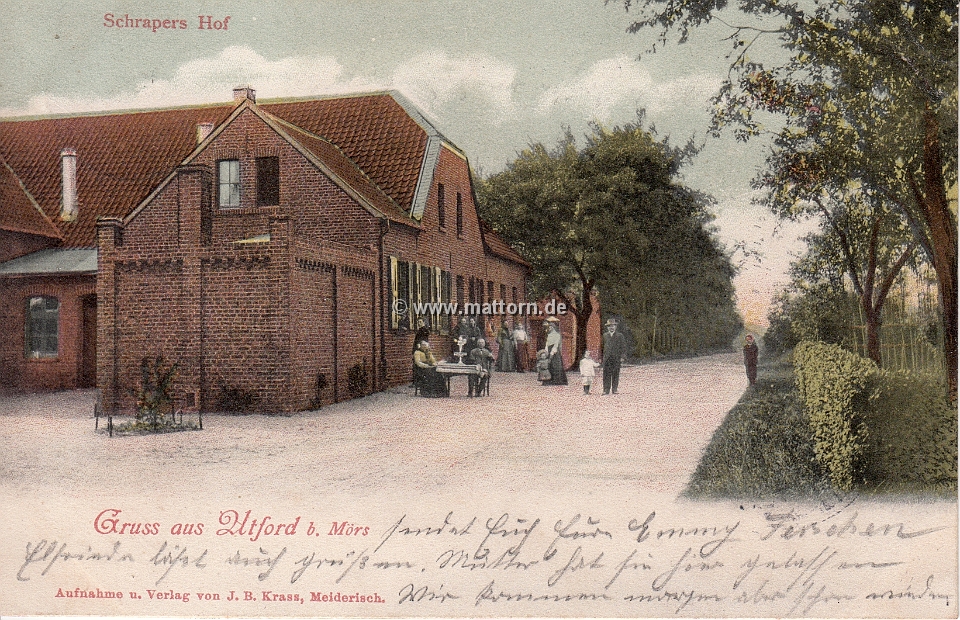 Schrapers Hof
© www.mattorn.de
Gruss aus Utford b. Mörs
sendet Euch Eure Emmy
Elfriede läßt auch grüßen. Mutter hat sie hier gelassen
Aufnahme u. Verlag von J. B. Krass, Meiderisch.
Wir kommen morgen aber schon wieder